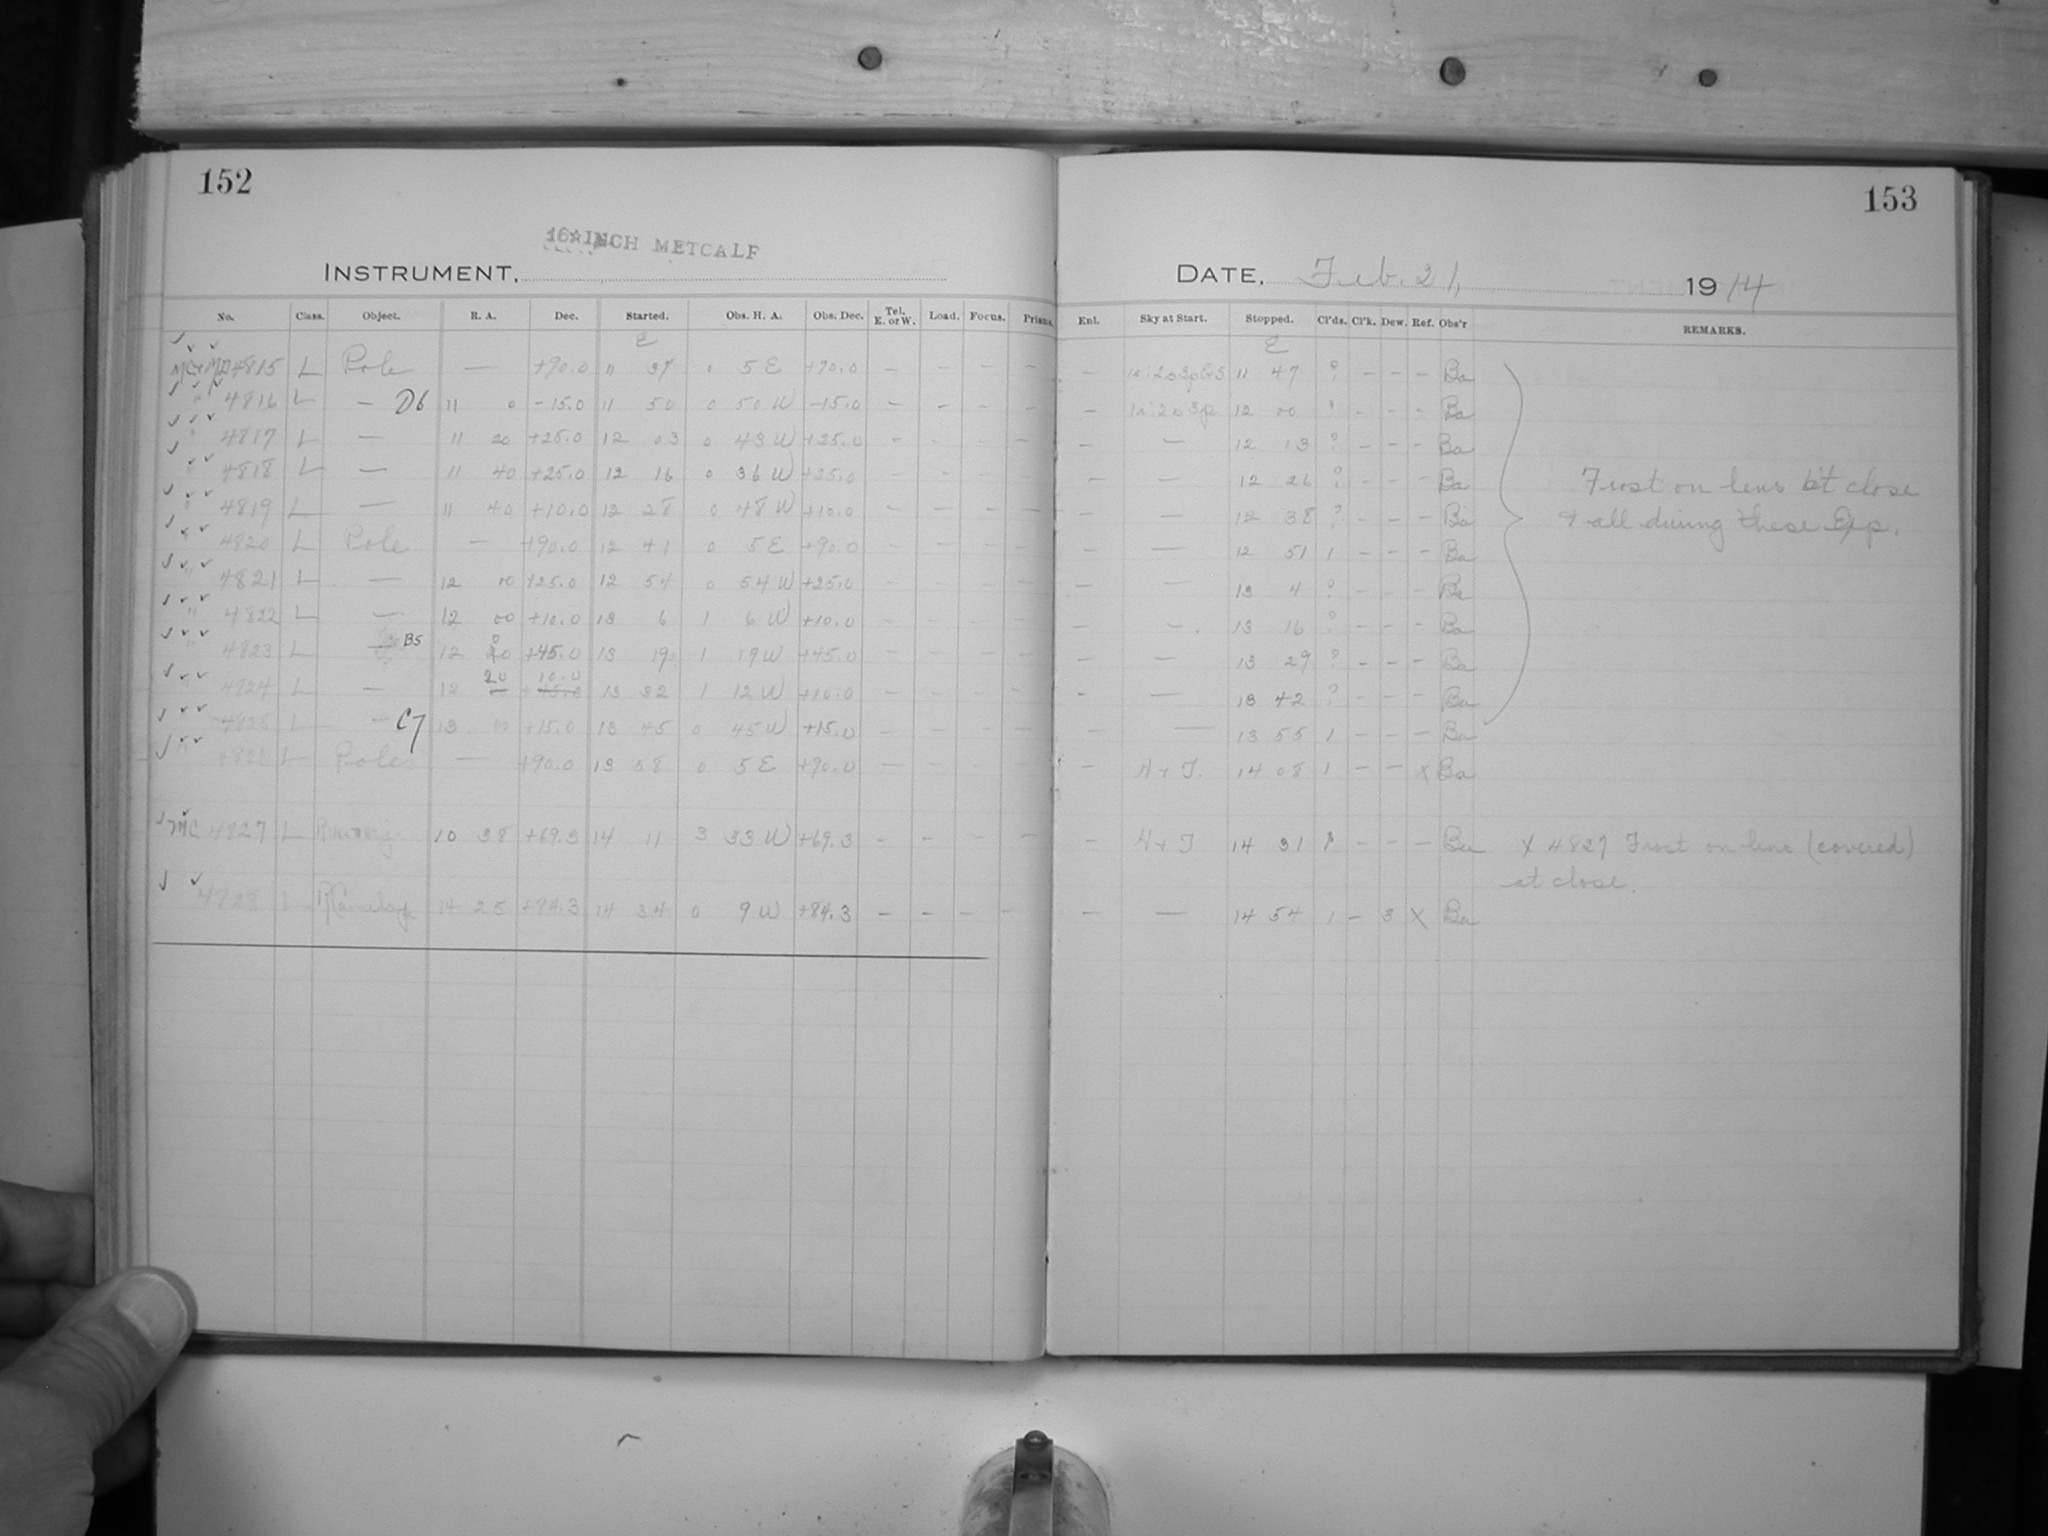 152
16 INCH METCALF
INSTRUMENT,
No. Class. Object. R. A. Dec. Started. Obs. H. A. Obs. Dec. Tel. E. or W. Load. Focus. Prism.
E
MC+MD 4815 L Pole — +90.0 11 37 0 5 E +90.0 — — — —
" 4816 L — D6 11 0 -15.0 11 50 0 50 W -15.0 — — — —
" 4817 L — 11 20 +25.0 12 03 0 43 W +25.0 — — — —
" 4818 L — 11 40 +25.0 12 16 0 36 W +25.0 — — — —
" 4819 L — 11 40 +10.0 12 28 0 48 W +10.0 — — — —
" 4820 L Pole — +90.0 12 41 0 5 E +90.0 — — — —
" 4821 L — 12 00 +25.0 12 54 0 54 W +25.0 — — — —
" 4822 L — 12 00 +10.0 13 6 1 6 W +10.0 — — — —
" 4823 L B5 12 0 +45.0 13 19 1 19 W +45.0 — — — —
" 4824 L — 12 20 10.0 13 32 1 12 W +10.0 — — — —
4825 L — C7 13 00 +15.0 13 45 0 45 W +15.0 — — — —
" 4826 L Pole — +90.0 13 58 0 5 E +90.0 — — — —
MC 4827 L 10 38 +69.3 14 11 3 33 W +69.3 — — — —
4828 L RCamelop 14 25 +84.3 14 34 0 9 W +84.3 — — — —
153
DATE, Feb. 21, 1914
Enl. Sky at Start. Stopped. Cl'ds. Cl'k. Dew. Ref. Obs'r REMARKS.
E
— 11 47 ? — — — Ba
— 12 00 ? — — — Ba
— — 12 13 ? — — — Ba
— — 12 26 ? — — — Ba
— — 12 38 ? — — — Ba
— — 12 51 1 — — — Ba
— — 13 4 ? — — — Ba
— — 13 16 ? — — — Ba
— — 13 29 ? — — — Ba
— — 13 42 ? — — — Ba
— — 13 55 1 — — — Ba
— H + T. 14 08 1 — — X Ba
— H + T 14 31 — — — Ba
— — 14 54 1 — 3 X Ba
Frost on lens at close
& all during these Exp.
X 4827 Frost on lens (covered)
at close.